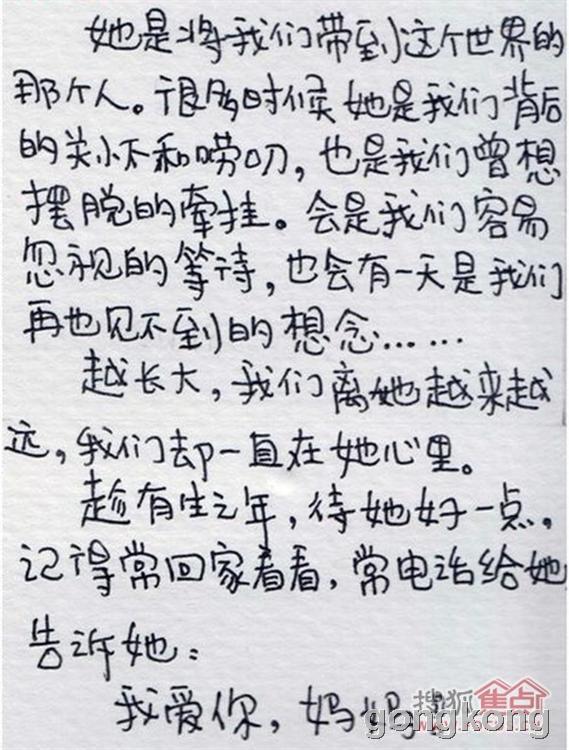 她是将我们带到这个世界的
那个人。很多时候她是我们背后
的关怀和唠叨，也是我们曾想
摆脱的牵挂。会是我们容易
忽视的等待，也会有一天是我们
再也见不到的想念……
越长大，我们离她越来越
远，我们却一直在她心里。
趁有生之年，待她好一点，
记得常回家看看，常电话给她
告诉她：
我爱你，妈妈
搜狐焦点
gongkong